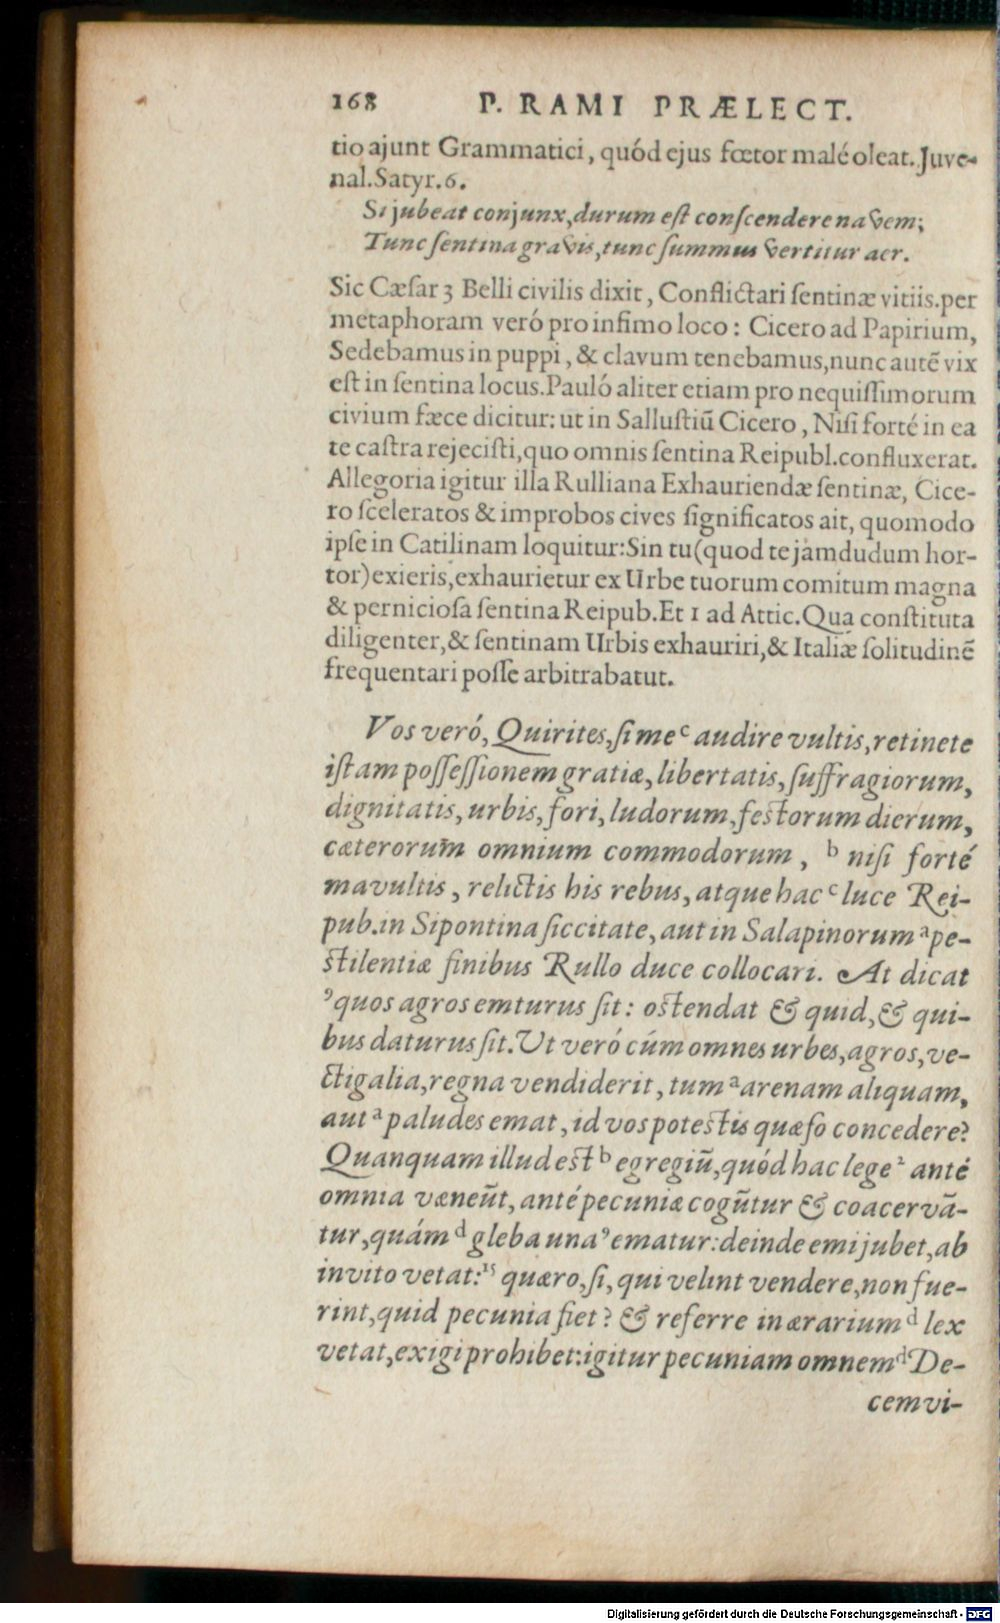 168 P. RAMI PRÆLECT.
tio ajunt Grammatici, quód ejus fœtor malé oleat. Juve-
nal. Satyr. 6.
Si jubeat conjunx, durum est conscendere navem;
Tunc sentina gravis, tunc summus vertitur aer.
Sic Cæsar 3 Belli civilis dixit, Conflictari sentinæ vitiis. per
metaphoram veró pro infimo loco: Cicero ad Papirium,
Sedebamus in puppi, & clavum tenebamus, nunc autẽ vix
est in sentina locus. Pauló aliter etiam pro nequissimorum
civium fæce dicitur: ut in Sallustiũ Cicero, Nisi forté in ea
te castra rejecisti, quo omnis sentina Reipubl. confluxerat.
Allegoria igitur illa Rulliana Exhauriendæ sentinæ, Cice-
ro sceleratos & improbos cives significatos ait, quomodo
ipse in Catilinam loquitur: Sin tu (quod te jamdudum hor-
tor) exieris, exhaurietur ex Urbe tuorum comitum magna
& perniciosa sentina Reipub. Et 1 ad Attic. Quá constituta
diligenter, & sentinam Urbis exhauriri, & Italiæ solitudinẽ
frequentari posse arbitrabatur.
Vos veró, Quirites, si me ᶜ audire vultis, retinete
istam possessionem gratiæ, libertatis, suffragiorum,
dignitatis, urbis, fori, ludorum, festorum dierum,
cæterorum̃ omnium commodorum, ᵇ nisi forté
mavultis, relictis his rebus, atque hac ᶜ luce Rei-
pub. in Sipontina siccitate, aut in Salapinorum ᵃ pe-
stilentiæ finibus Rullo duce collocari. At dicat
⁹ quos agros emturus sit: ostendat & quid, & qui-
bus daturus sit. Ut veró cúm omnes urbes, agros, ve-
ctigalia, regna vendiderit, tum ᵃ arenam aliquam,
aut ᵃ paludes emat, id vos potestis quæso concedere?
Quanquam illud est ᵇ egregiũ, quód hac lege ² anté
omnia væneũt, anté pecuniæ cogũtur & coacervã-
tur, quám ᵈ gleba una ⁹ ematur: deinde emi jubet, ab
invito vetat: ¹⁵ quæro, si, qui velint vendere, non fue-
rint, quid pecunia fiet? & referre in ærarium ᵈ lex
vetat, exigi prohibet: igitur pecuniam omnem ᵈ De-
cemvi-
Digitalisierung gefördert durch die Deutsche Forschungsgemeinschaft - DFG